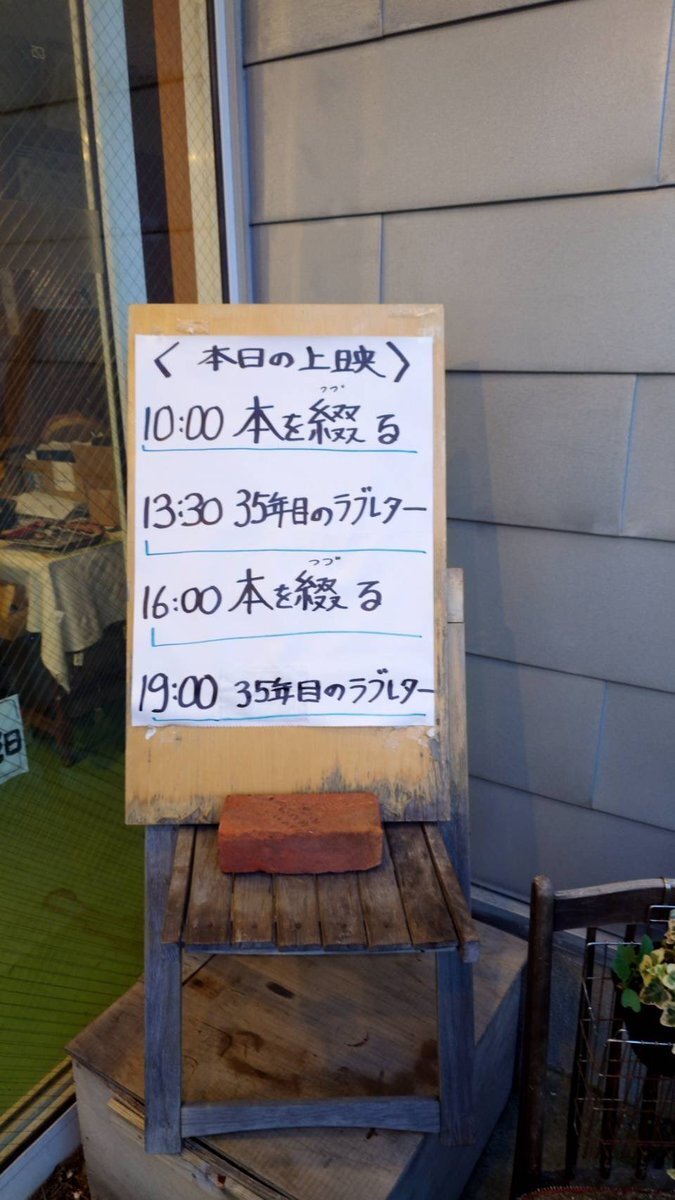 〈 本日の上映 〉
つづ
10:00 本を綴る
13:30 35年目のラブレター
つづ
16:00 本を綴る
19:00 35年目のラブレター
日